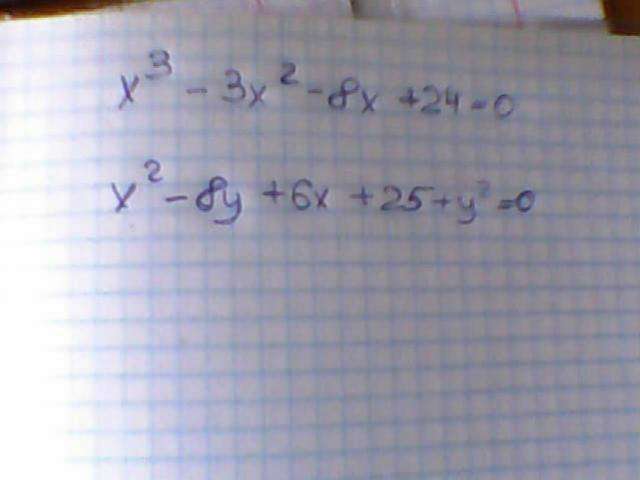 x³ - 3x² - 8x + 24 = 0
x² - 8y + 6x + 25 + y² = 0